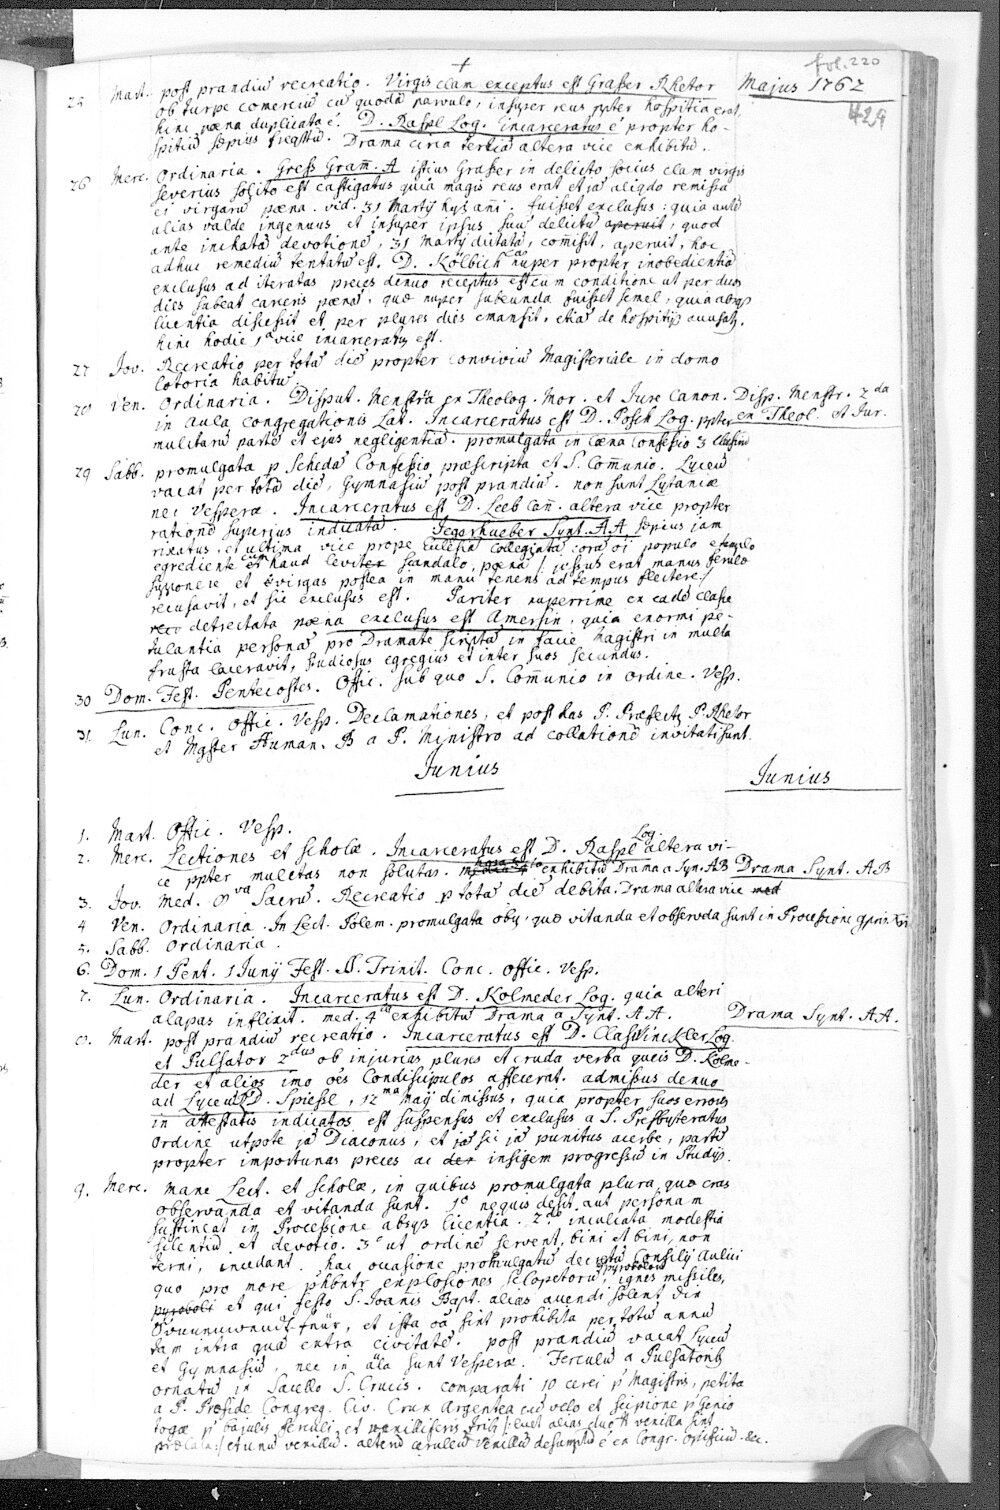 fol. 220
Majus 1762
429
25 Mart. post prandiũ recreatio. Virgis clam exceptus est Grasser Rhetor
ob turpe comerciũ cũ quodã parvulo, insuper reus ppter hospitia erat,
hinc pœna duplicata ẽ. D. Raspl Log. incarceratus ẽ propter ho-
spitiũ sæpius Drama circa tertiã altera vice exhibitũ.
26 Merc. Ordinaria. Gress Gram̃. A istius Grasser in delicto socius clam virgis
severius solito est castigatus quia magis reus erat et jã aliqdo remissa
ei virgarũ pœna. vid. 31 Martij huj. añi. fuisset exclusus: quia autẽ
alias valde ingenuus et insuper ipsus suũ delictũ aperuit, quod
ante inchatã devotionẽ, 31 Martij dictatã, com̃isit, aperuit, hoc
adhuc remediũ tentatũ est. D. Kölbich nuper propter inobedientiã
exclusus ad iteratas preces denuo receptus est cum conditione ut per duos
dies subeat carceris pœnã, quæ nuper subeunda fuisset semel, quia absq
licentia discessit et per plures dies emansit, etiã de hospitijs accusat9,
hinc hodie 1ª vice incarceratus est.
27 Jov. Recreatio per totã diẽ propter conviviũ Magisteriale in domo
lotoria habitũ.
28 Ven. Ordinaria. Disput. Menstrũa ex Theolog. Mor. et Jure Canon.
Disp. Menstr. 2da
in Aula Congregationis Lat. Incarceratus est D. Posch Log. ppter
ex Theol. et Jur.
mulctarũ parte et ejus negligentiã. promulgata in cæna Confessio 3 Classiũ
29 Sabb. promulgata p schedã Confessio præscripta et S. Com̃unio. Lyceũ
vacat per totã diẽ, Gymnasiũ post prandiũ. non sunt Lytaniæ
nec Vesperæ. Incarceratus est D. Leeb Can̄. altera vice propter
rationẽ superius indicatã. Jegerhueber Synt. AA, sæpius jam
rixatus, et ultima vice prope Eccl̃esiã Collegiatã corã oĩ populo e templo
egrediente cum haud levi scandalo, pœnã /: jussus erat manus ferulæ
supponere et virgas postea in manu tenens ad tempus flectere:/
recusavit, et sic exclusus est. Pariter nuperrime ex eadẽ classe
detrectata pœna exclusus est Amersin, quia enormi pe-
tulantia personã pro Dramate scriptã in facie Magistri in multa
frusta laceravit, studiosus egregius et inter suos secundus.
30 Dom. Fest. Pentecostes. Offic. sub quo S. Com̃unio in ordine. Vesp.
31. Lun. Conc. Offic. Vesp. Declamationes, et post has P. Præfect9 P. Rhetor
et Mgster Human. B a P. Ministro ad collationẽ invitati sunt.
Junius
Junius
1. Mart. Offic. Vesp.
2. Merc. Lectiones et scholæ. Incarceratus est D. Raspl Log. altera vi-
ce ppter mulctas non solutas. exhibitũ Drama a Syn. AB
Drama Synt. AB
3. Jov. Med. 8va Sacrũ. Recreatio p totã diẽ debita. Drama altera vice
4 Ven. Ordinaria. In Lect. Polem. promulgata oĩa, quæ vitanda et observãda sunt in Processione
5. Sabb. Ordinaria.
6. Dom. 1 Pent. 1 Junij Fest. SS. Trinit. Conc. Offic. Vesp.
7. Lun. Ordinaria. Incarceratus est D. Kolmeder Log. quia alteri
alapas inflixit. med. 4ta exhibitũ Drama a Synt. AA.
Drama Synt. AA.
8. Mart. post prandiũ recreatio. Incarceratus est D. Clas Winckler Log.
et Pulsator 2dus ob injurias plures et cruda verba queis D. Kolme-
der et alios imo oẽs Condiscipulos affecerat. admissus denuo
ad Lyceũ D. Spiessl, 12ma Maij dimissus, quia propter suos errores
in attestatis indicatos est suspensus et exclusus a S. Presbyteratus
Ordine utpote jã Diaconus, et sic jã punitus acerbe, partĩ
propter importunas preces ac insignem progressũ in studijs.
9. Merc. mane Lect. et scholæ, in quibus promulgata plura, quæ cras
observanda et vitanda sunt. 1º nequis desit aut personam
sustineat in Processione absque licentia. 2do inculcata modestia
silentiũ et devotio. 3º ut ordinẽ servent, bini et bini, non
terni, incedant. hac occasione promulgatũ decretũ Consilij Aulici
quo pro more phibentr explosiones sclopetorũ, pyroboloru ignes missiles,
pyroboli et qui festo S. Joañis Bapt. alias accendi solent die
feüer, et ista oĩa sint prohibita per totũ annũ
tam intra quã extra civitatẽ. post prandiũ vacat Lyceũ
et Gymnasiũ, nec in aula sunt Vesperæ. Ferculũ a Pulsatorib9
ornatũ in Sacello S. Crucis. comparati 10 cerei p Magistris, petita
a P. Præside Congreg. Civ. Crux Argentea cũ velo et scipione p Genio
togæ p bajulis ferculi et vexilliferis trib9 /: licet alias duo tm̃ vexilla sint
:/ et unũ vexillũ. alterũ cæruleũ vexillũ desumptũ ẽ ex Congr. Opificũ &c.